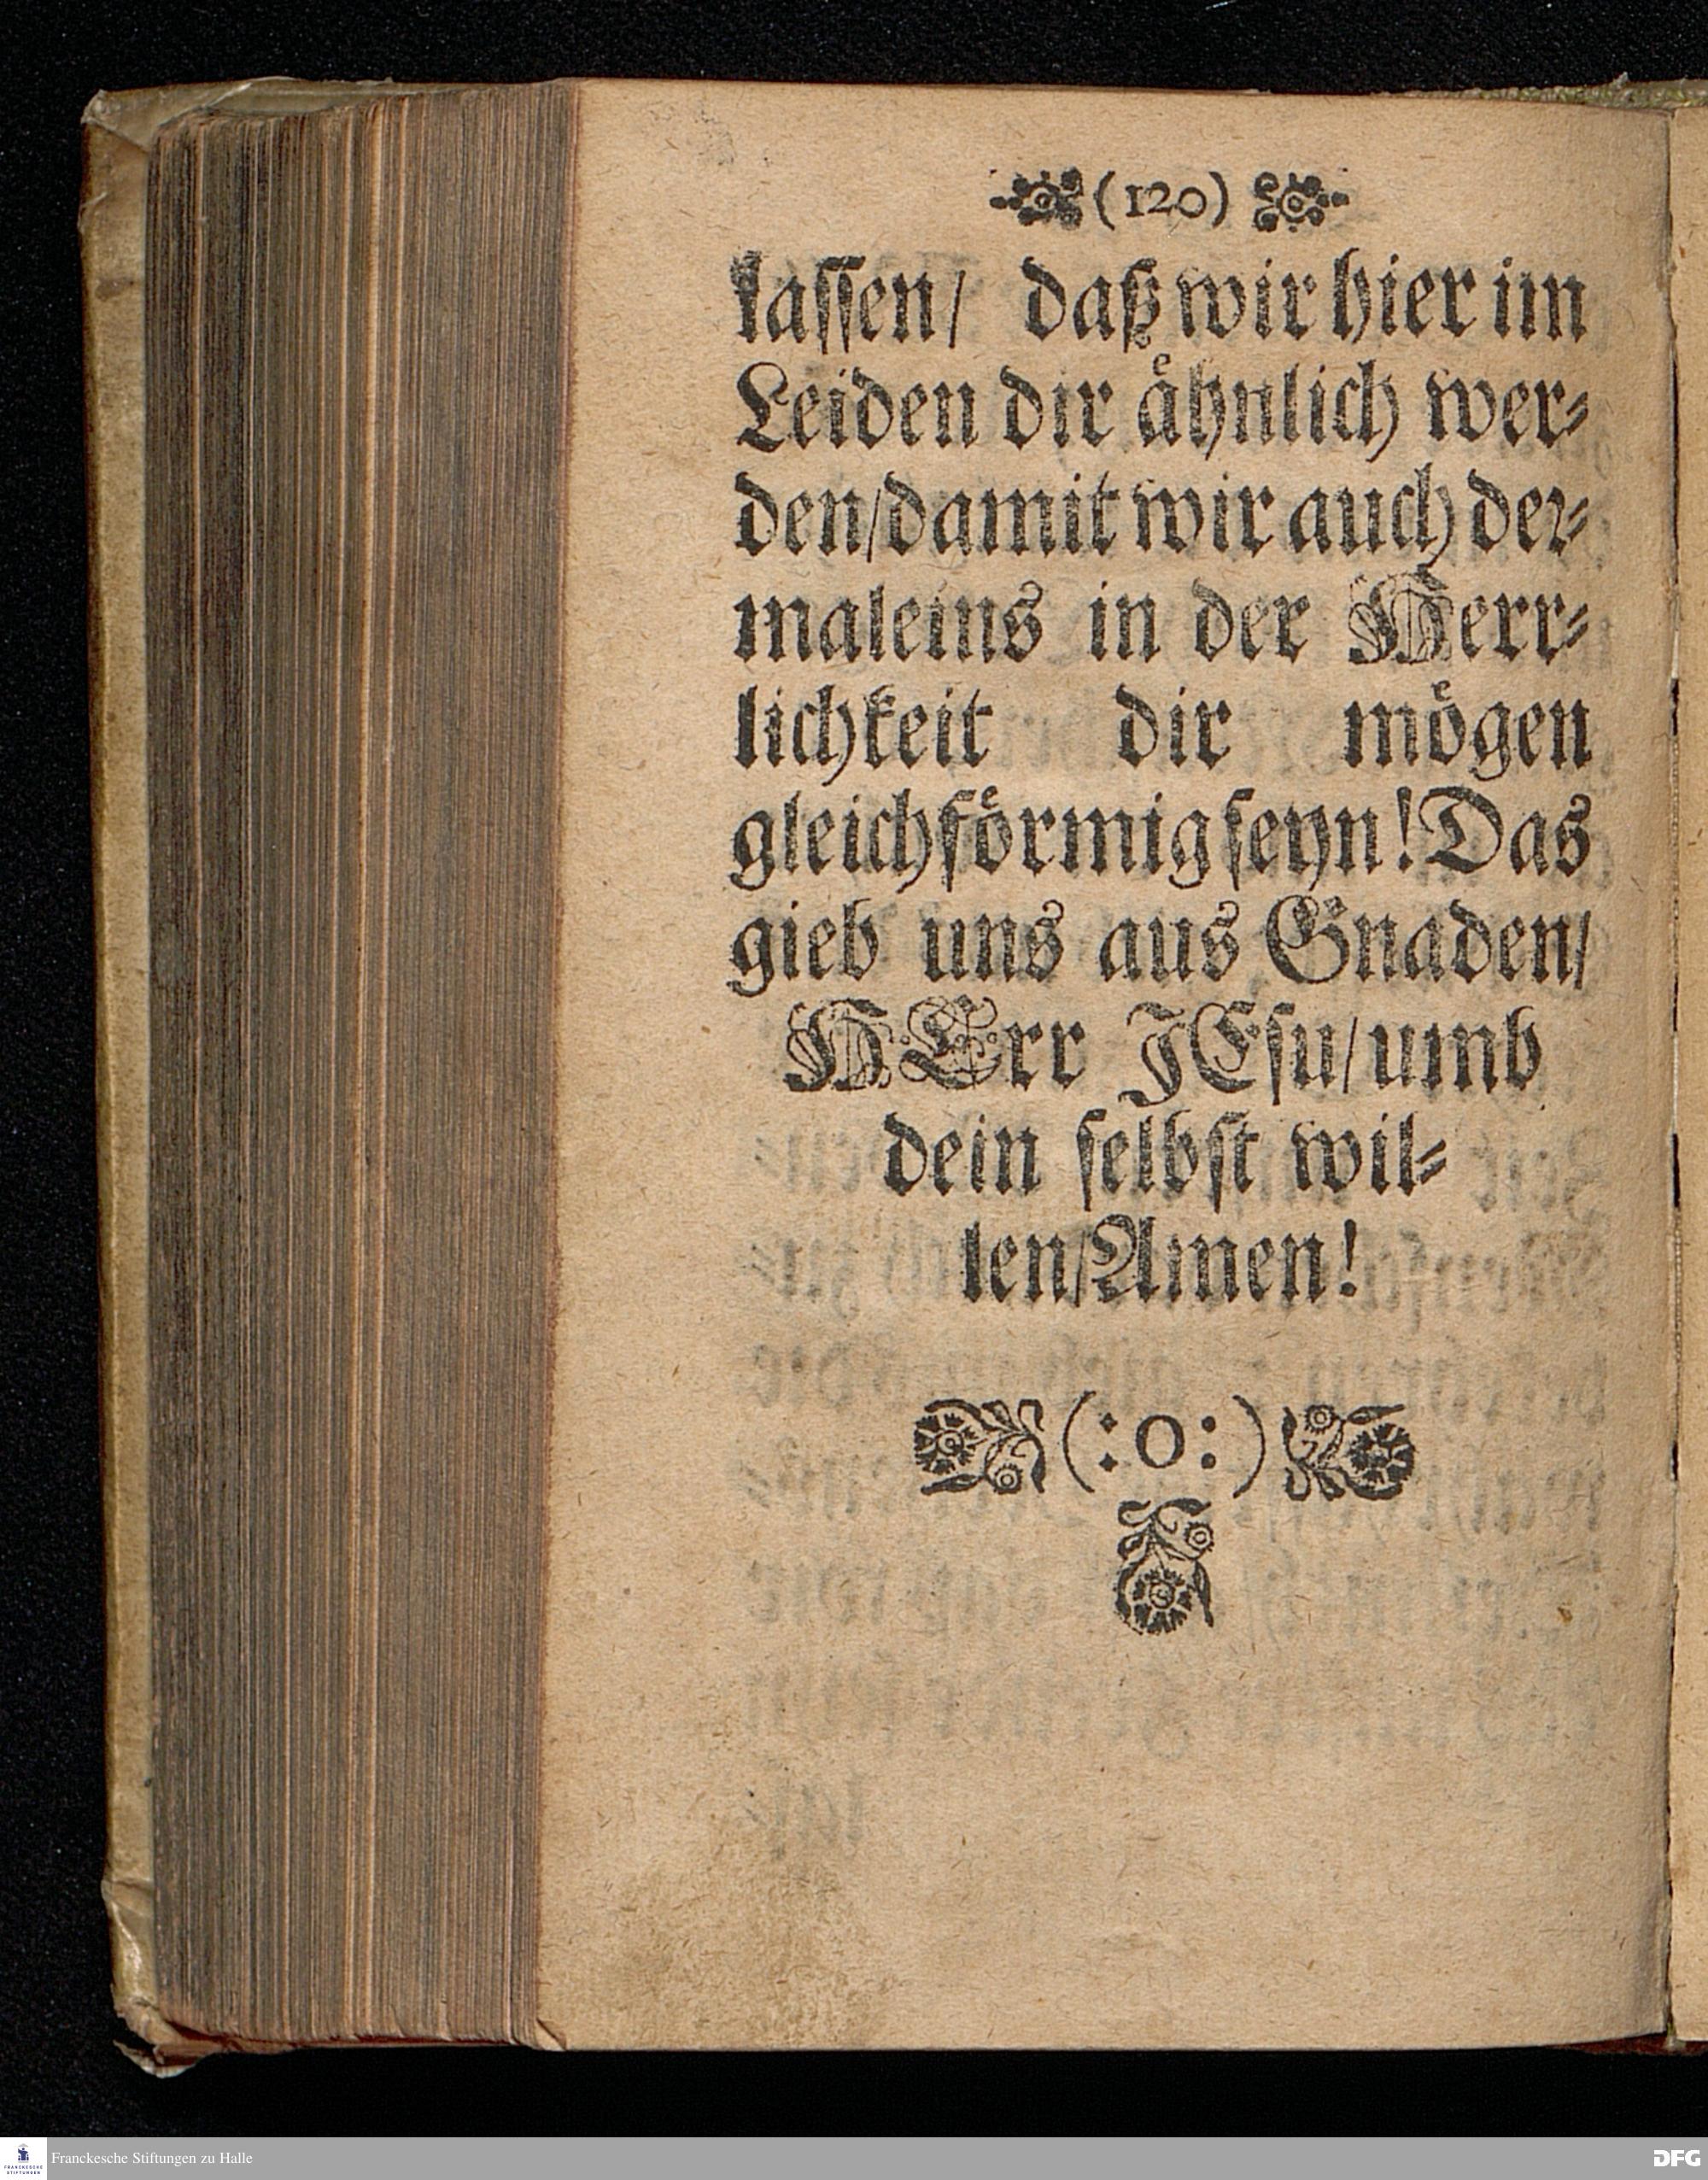 (120)
lassen/ daß wir hier im
Leiden dir aͤhnlich wer⸗
den/damit wir auch der⸗
maleins in der Herr⸗
lichkeit dir moͤgen
gleichfoͤrmig seyn! Das
gieb uns aus Gnaden/
HErr JEsu/umb
dein selbst wil⸗
len/Amen!
(:o:)
Franckesche Stiftungen zu Halle
FRANCKESCHE
STIFTUNGEN
DFG